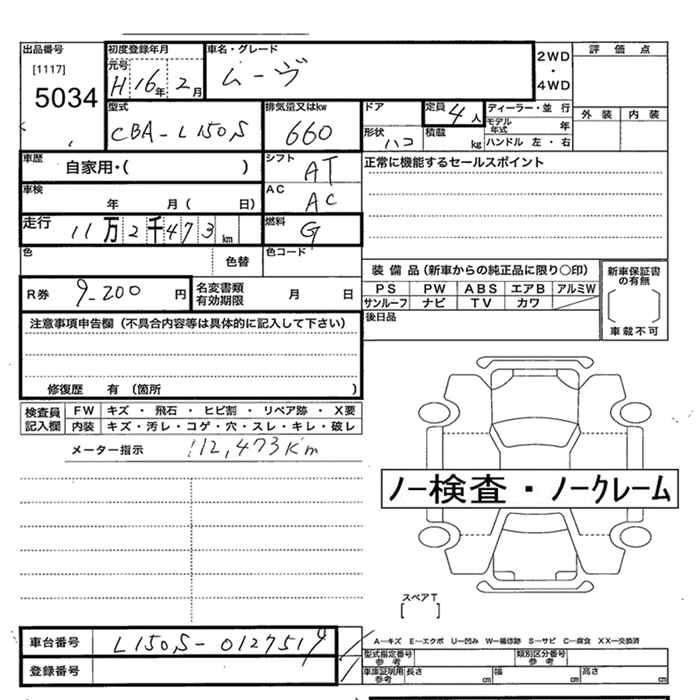 出品番号 初度登録年月 車名・グレード 評価点
[1117] 元号 ムーヴ 2WD
5034 H16年2月 ・ 4WD
型式 排気量又はkw ドア 定員 4人 ディーラー・並行 外装 内装
CBA-L150S 660 形状 ハコ 積載 kg モデル年式 年
ハンドル 左・右
車歴 自家用・( ) シフト AT 正常に機能するセールスポイント
車検 年 月( 日) AC AC
走行 11万2千473km 燃料 G
色 色替 色コード
装備品(新車からの純正品に限り○印) 新車保証書の有無
R券 9-200円 名変書類有効期限 月 日 PS PW ABS エアB アルミW
サンルーフ ナビ TV カワ [ ]
注意事項申告欄(不具合内容等は具体的に記入して下さい) 後日品 車載不可
修復歴 有 (箇所 )
検査員記入欄 FW キズ・飛石・ヒビ割・リペア跡・X要
内装 キズ・汚レ・コゲ・穴・スレ・キレ・破レ
メーター指示 112,473Km
ノー検査・ノークレーム
スペアT
[ ]
車台番号 L150S-0127519 A―キズ E―エクボ U―凹み W―補修跡 S―サビ C―腐食 XX―交換済
型式指定番号参考 類別区分番号参考
登録番号 車庫証明用参考 長さ cm 幅 cm 高さ cm